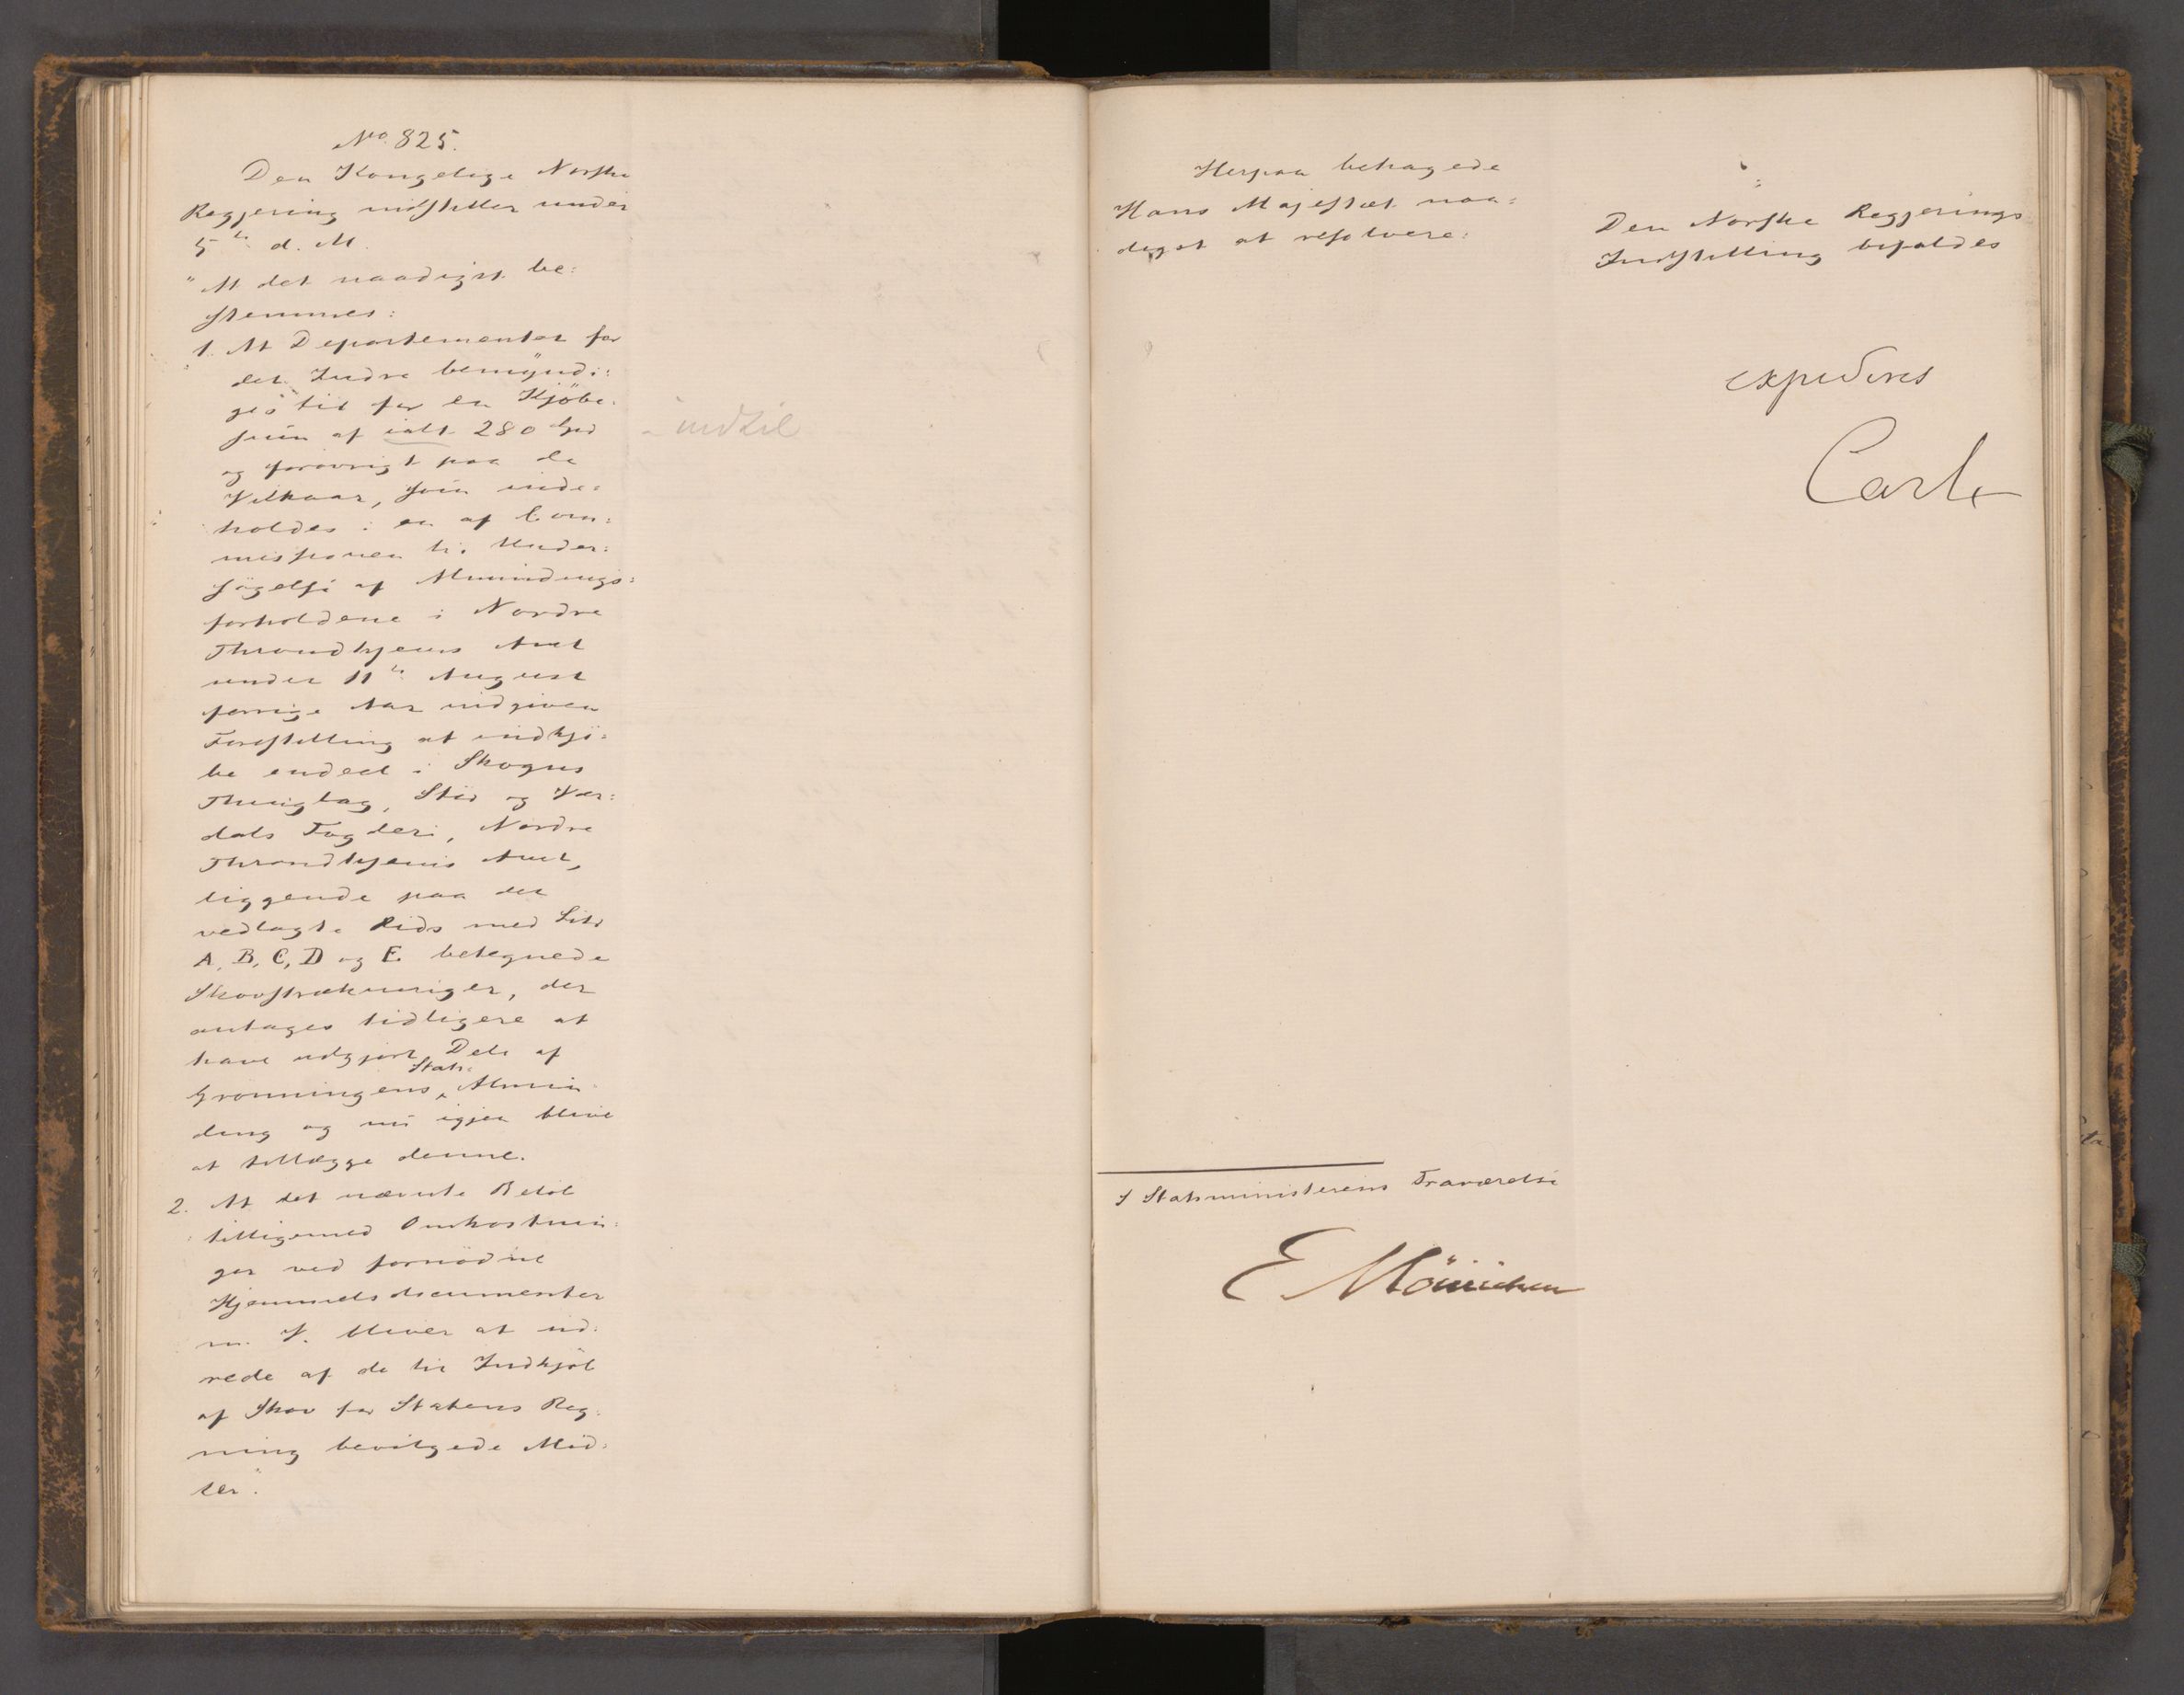 No. 825.
Den Kongelige Norske
Regjering indstiller under
5te d. M.
"At det naadigst be=
stemmes:
1. At Departementet for
det Indre bemyndi=
ges til for en Kjöbe=
sum af ialt 280 Spd
og forövrigt paa de
Vilkaar, som inde=
holdes i en af Com=
missionen til Under=
sögelse af Almindings=
forholdene i Nordre
Throndhjems Amt
under 11te August
forrige Aar indgiven
Forestilling at indkjö=
be endeel i Skogns
Thinglag, Stör og Vær=
dals Fogderi, Nordre
Throndhjems Amt,
liggende paa det
vedlagte Rids med Litr
A, B, C, D og E betegnede
Skovstrækninger, der
antages tidligere at
have udgjort Dele af
Stats=
Grönningens Almin
ding og nu igjen blive
at tillægge denne.
2. At det nævnte Belöb
tilligemed Omkostnin=
ger ved fornödne
Hjemmelsdocumenter
m. V. bliver at ud=
rede af de til Indkjöb
af Skov for Statens Reg=
ning bevilgede Mid=
ler".
- indtil
Herpaa behagede
Hans Majestæt naa=
digst at resolvere:
Den Norske Regjerings
Indstilling bifaldes
expederes
Carl
I Statsministerens Fraværelse
E Mönichen